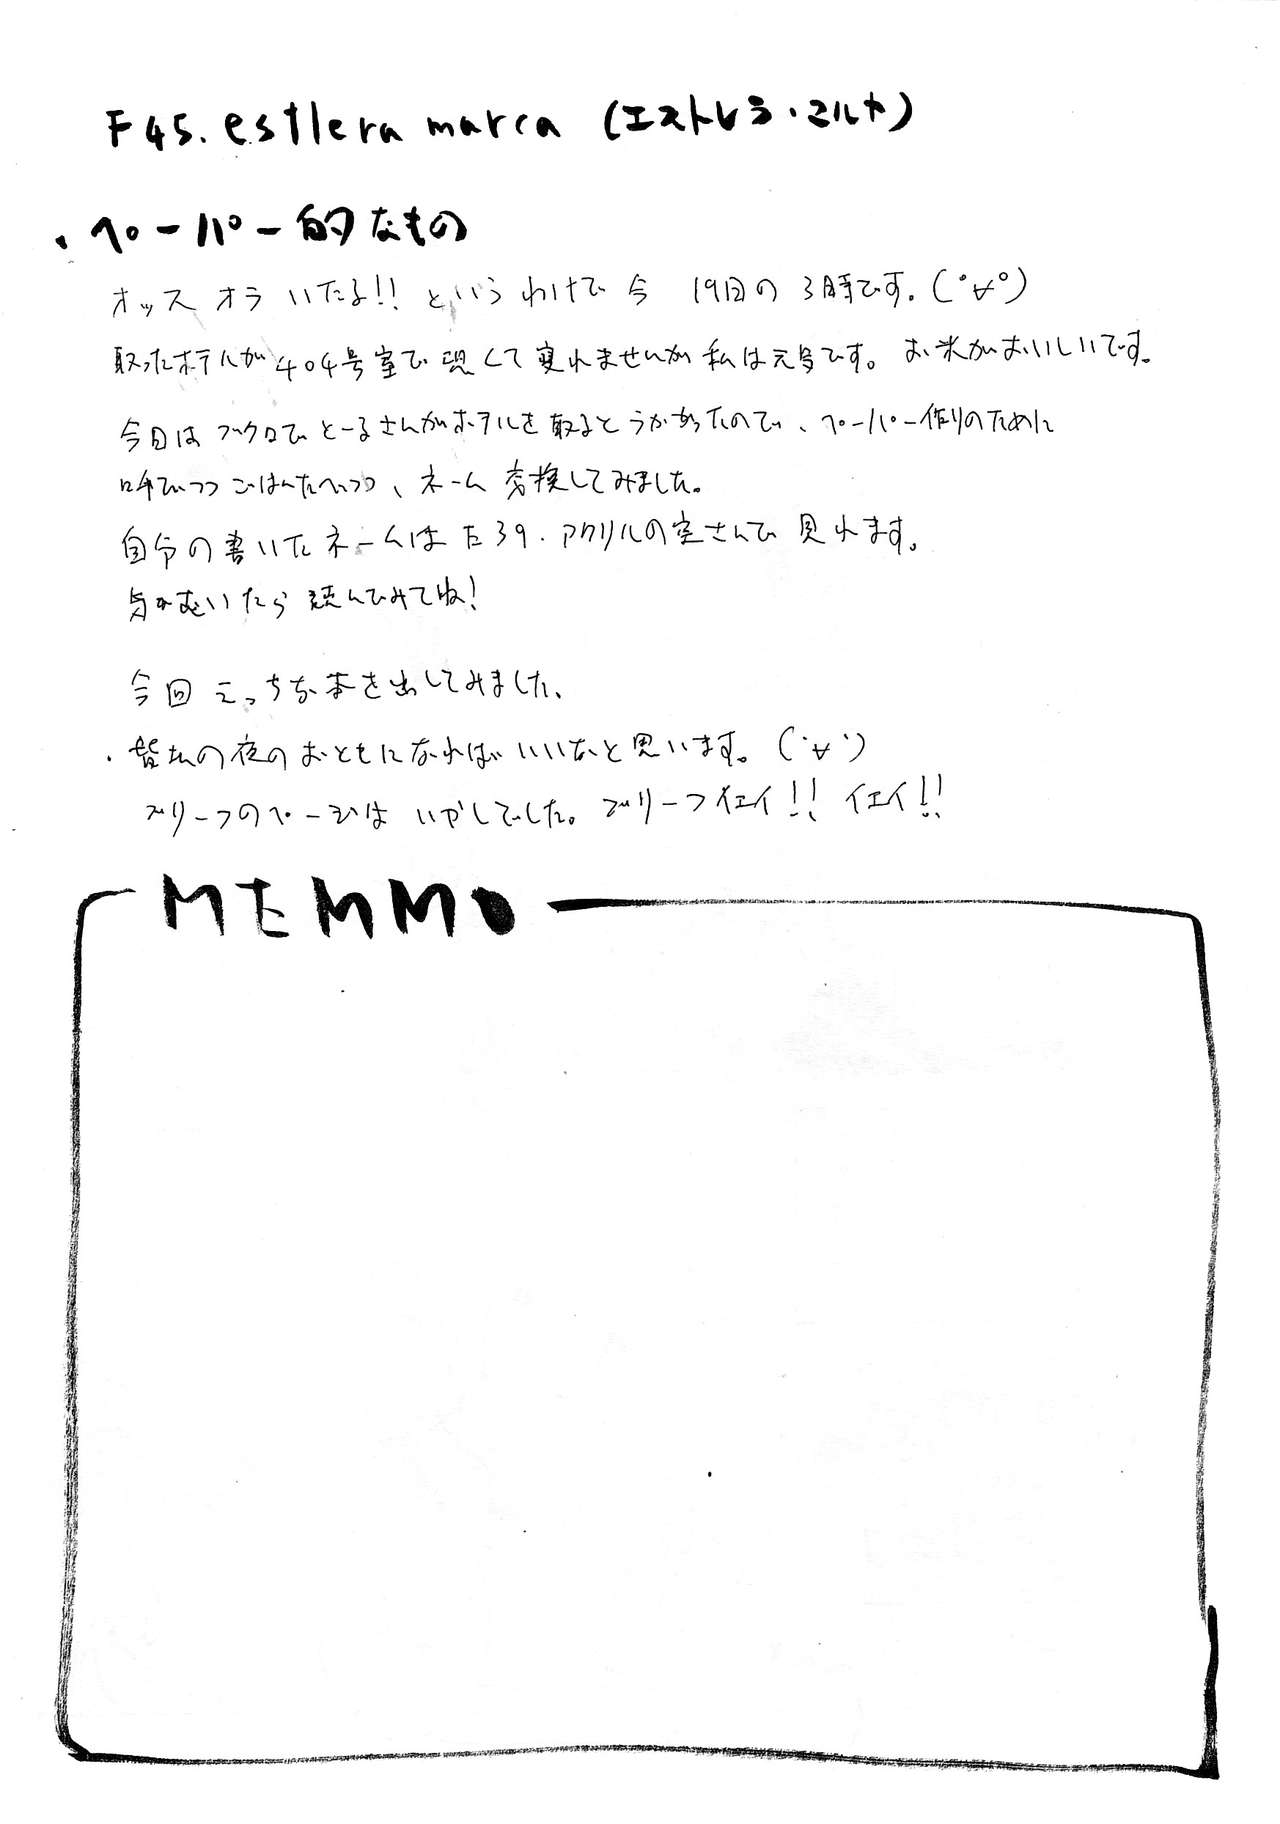 F45. estlera marca (エストレラ・マルカ)
・ペーパー的なもの
オッス オラ いたる!! というわけで 今 19日の 3時です。(゚∀゚)
取ったホテルが 404号室で 恐くて 寝れませんが 私は元気です。 お米がおいしいです。
今日は ブクロで とーるさんがホテルを取るとうかがったので、ペーパー作りのために
呼びつつ ごはんたべつつ、ネーム 交換してみました。
自分の書いたネームは た39. アクリルの空さんで 見れます。
気がむいたら 読んでみてね!
今回 えっちな本を出してみました、
・皆さんの夜のおともになればいいなと思います。(・∀・)
ブリーフのページは いかしてました。 ブリーフイエイ!! イエイ!!
MEMMO